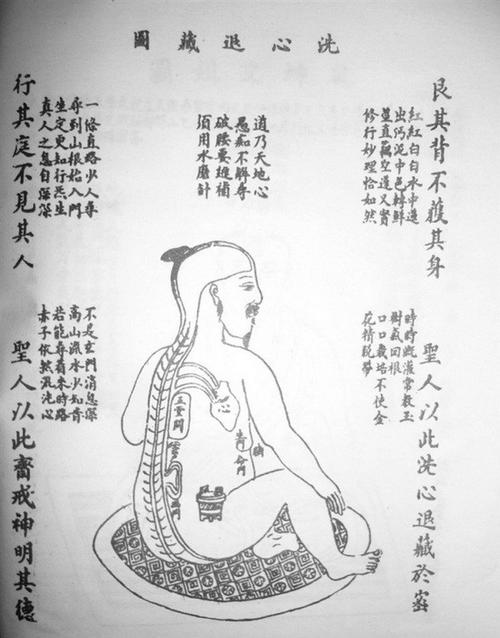 洗心退藏圖
艮其背不獲其身
聖人以此洗心退藏於密
紅紅白白水中蓮
出污泥中色轉鮮
莖直藕空蓬又實
修行妙理恰如然
時時澆灌常教玉
樹氣回根
口口栽培不使金
花精脫蒂
道乃天地心
愚痴不解尋
破腰要進補
須用水磨針
一條直路少人尋
尋到山根始入門
坐定更知行炁主
真人之息自深深
不是玄門消息深
高山流水少知音
若能尋着來時路
赤子依然混沌心
行其庭不見其人
聖人以此齋戒神明其德
心
命門
臍